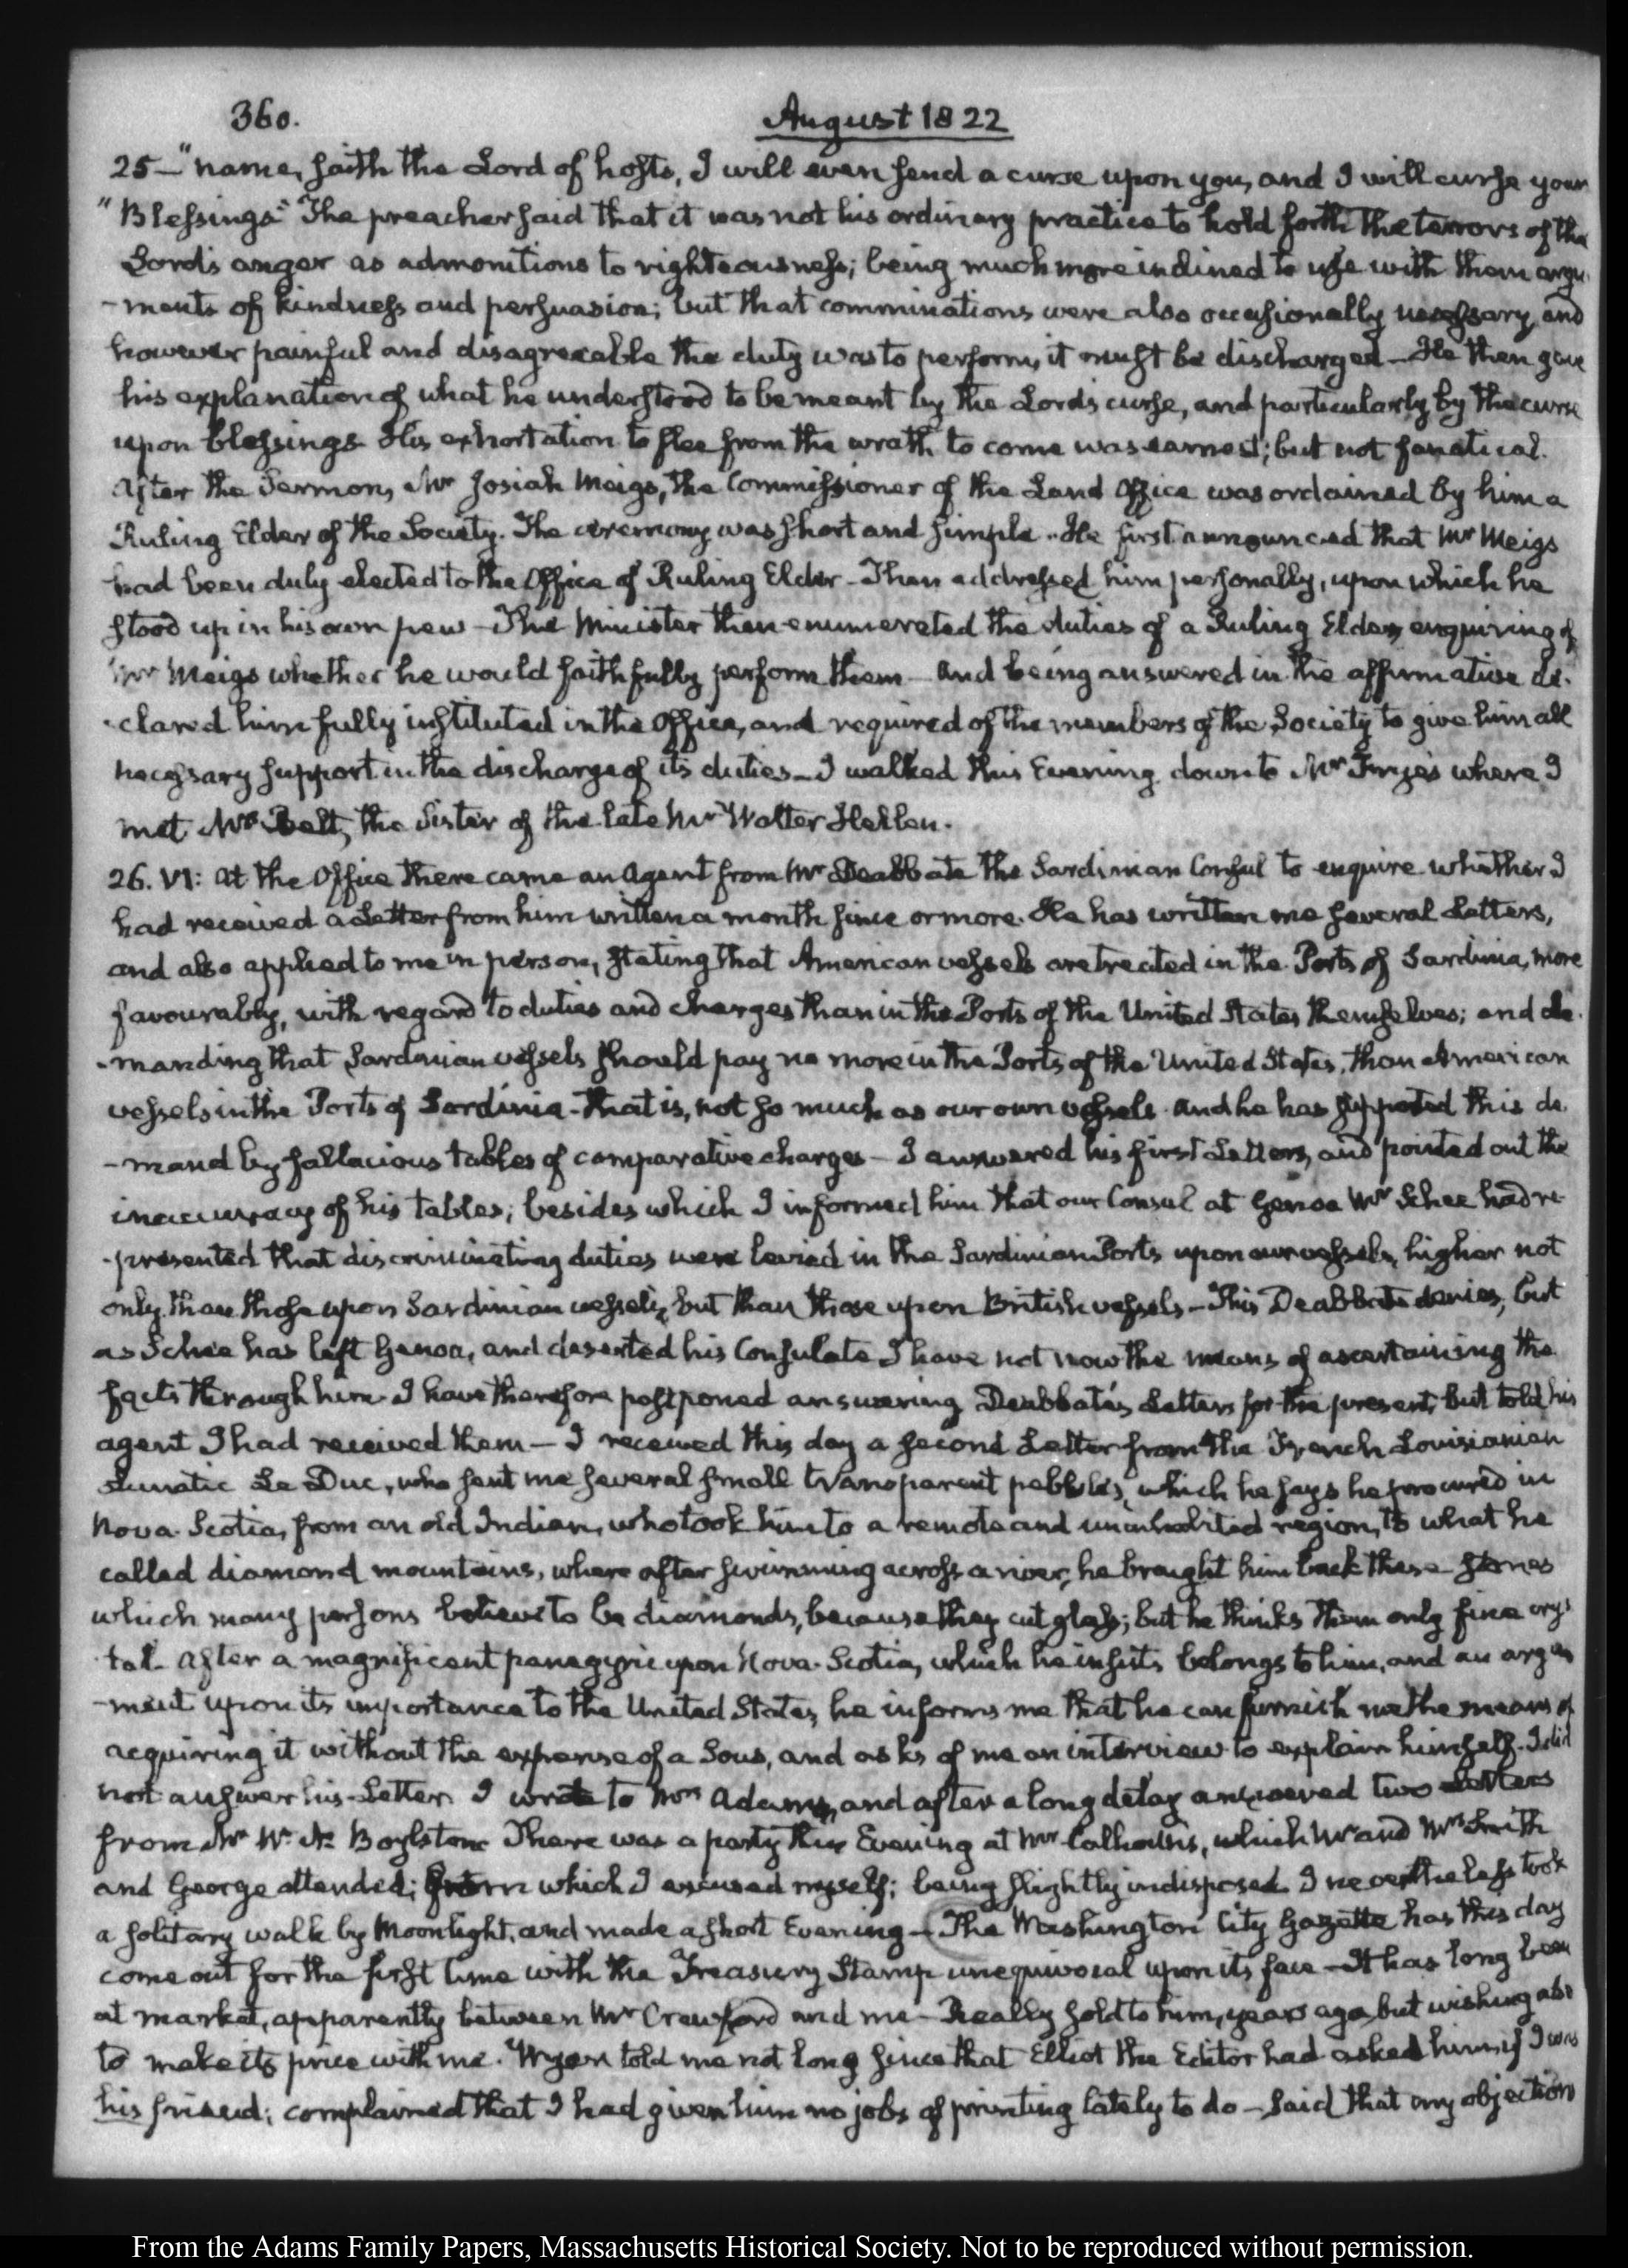 360.
August 1822
25 — "name, saith the Lord of hosts, I will even send a curse upon you, and I will curse your
"Blessings." The preacher said that it was not his ordinary practice to hold forth the terrors of the
Lord's anger as admonitions to righteousness; being much more inclined to use with them argu-
-ments of kindness and persuasion; but that comminations were also occasionally necessary, and
however painful and disagreeable the duty was to perform, it must be discharged — He then gave
his explanation of what he understood to be meant by the Lord's curse, and particularly by the curse
upon blessings. His exhortation to flee from the wrath to come was earnest; but not fanatical.
After the Sermon, Mr Josiah Meigs, the Commissioner of the Land Office was ordained by him a
Ruling Elder of the Society. The ceremony was short and simple. He first announced that Mr Meigs
had been duly elected to the Office of Ruling Elder — Then addressed him personally, upon which he
stood up in his own pew — The Minister then enumerated the duties of a Ruling Elder, enquiring of
Mr Meigs whether he would faithfully perform them — And being answered in the affirmative de-
-clared him fully instituted in the Office, and required of the members of the Society to give him all
necessary support in the discharge of its duties — I walked this Evening down to Mr Frye's where I
met Mrs Belt, the Sister of the late Mr Walter Hellen.
26. VI: At the Office there came an Agent from Mr Deabbate the Sardinian Consul to enquire whether I
had received a Letter from him written a month since or more. He has written me several Letters,
and also applied to me in person, stating that American vessels are treated in the Ports of Sardinia, more
favourably, with regard to duties and charges than in the Ports of the United States themselves; and de-
-manding that Sardinian vessels should pay no more in the Ports of the United States, than American
vessels in the Ports of Sardinia — that is, not so much as our own vessels. And he has supported this de-
-mand by fallacious tables of comparative charges — I answered his first Letters, and pointed out the
inaccuracy of his tables; besides which I informed him that our Consul at Genoa Mr Schee had re-
-presented that discriminating duties were levied in the Sardinian Ports upon our vessels, higher not
only than those upon Sardinian vessels, but than those upon British vessels — This Deabbate denies, but
as Schee has left Genoa, and deserted his Consulate I have not now the means of ascertaining the
facts through him. I have therefore postponed answering Deabbate's Letters for the present; but told his
agent I had received them — I received this day a second Letter from the French Louisianian
Lunatic Le Duc, who sent me several small transparent pebbles, which he says he procured in
Nova-Scotia, from an old Indian, who took him to a remote and uninhabited region, to what he
called diamond mountains, where after swimming across a river, he brought him back these stones
which many persons believe to be diamonds, because they cut glass; but he thinks them only fine crys-
-tal. After a magnificent panegyric upon Nova-Scotia, which he insists belongs to him, and an argu-
-ment upon its importance to the United States, he informs me that he can furnish me the means of
acquiring it without the expense of a Sous, and asks of me an interview to explain himself. I did
not answer his Letter. I wrote to Mrs Adams, and after a long delay answered two Letters
from Mr W. N. Boylston. There was a party this Evening at Mr Calhoun's, which Mr and Mrs Smith
and George attended; from which I excused myself; being slightly indisposed. I nevertheless took
a solitary walk by Moonlight, and made a short Evening — The Washington City Gazette has this day
come out for the first time with the Treasury Stamp unequivocal upon its face — It has long been
at market, apparently between Mr Crawford and me — Really sold to him, years ago, but wishing also
to make its price with me. Wyer told me not long since that Elliot the Editor had asked him, if I was
his friend; complained that I had given him no jobs of printing lately to do — said that my objection
From the Adams Family Papers, Massachusetts Historical Society. Not to be reproduced without permission.